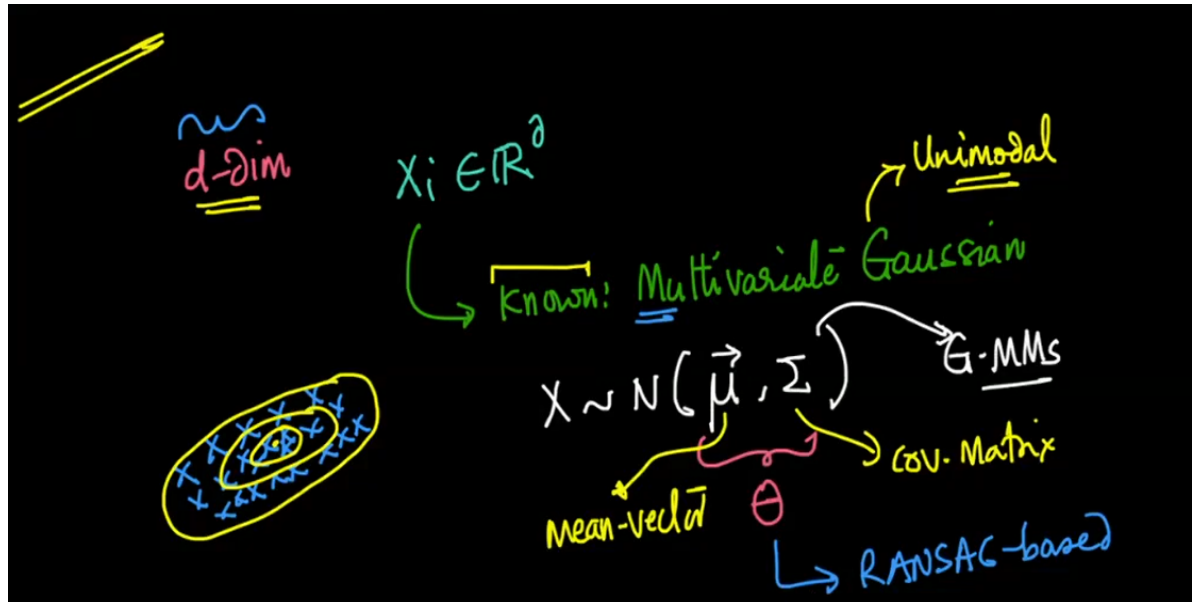 d-dim
Xi ∈ ℝᵈ
Unimodal
Known: Multivariate Gaussian
X ~ N(μ⃗, Σ)
G-MMs
Cov. Matrix
Mean-vector
θ
RANSAC-based